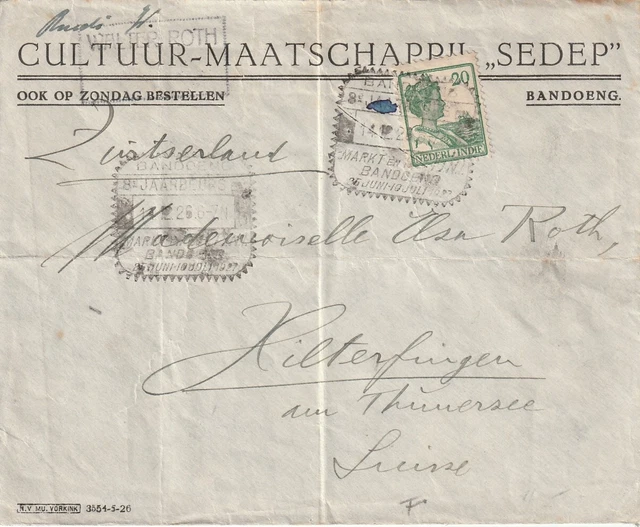 WALTER ROTH
CULTUUR-MAATSCHAPPIJ „SEDEP”
OOK OP ZONDAG BESTELLEN
BANDOENG.
20
NEDERL-INDIE
BANDOENG
MARKT en
BANDOENG
25 JUNI-10 JULI-1927
Zwitserland
BANDOENG
8e JAARBEURS
26.6-7
BANDOENG
25 JUNI-10 JULI-1927
Mademoiselle Elsa Roth,
Hilterfingen
am Thunersee
Suisse
N.V. MIJ. VORKINK 3554-5-26